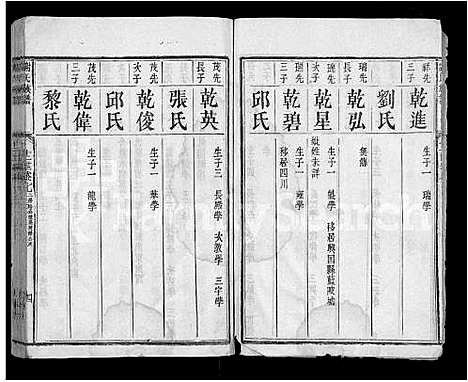 祥先
三子
乾進
生子一
瑞學
劉氏
瑞先
長子
乾弘
無傳
瑞先
次子
乾星
生子一
魁學
移居興國縣藍陂墟
妣姓未詳
瑞先
三子
乾碧
生子一
移居四川
邱氏
茂先
長子
乾英
生子三
長殿學
次教學
三宇學
張氏
茂先
次子
乾俊
生子一
華學
邱氏
茂先
三子
乾偉
生子二
龍學
黎氏
四